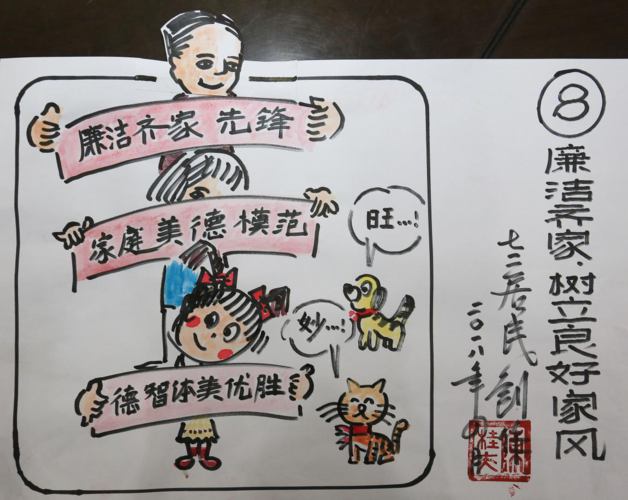 廉洁齐家 先锋
家庭 美德 模范
旺...!
妙...!
德智体美优胜
⑧
廉洁齐家·树立良好家风
七二居民 创
二〇一八年